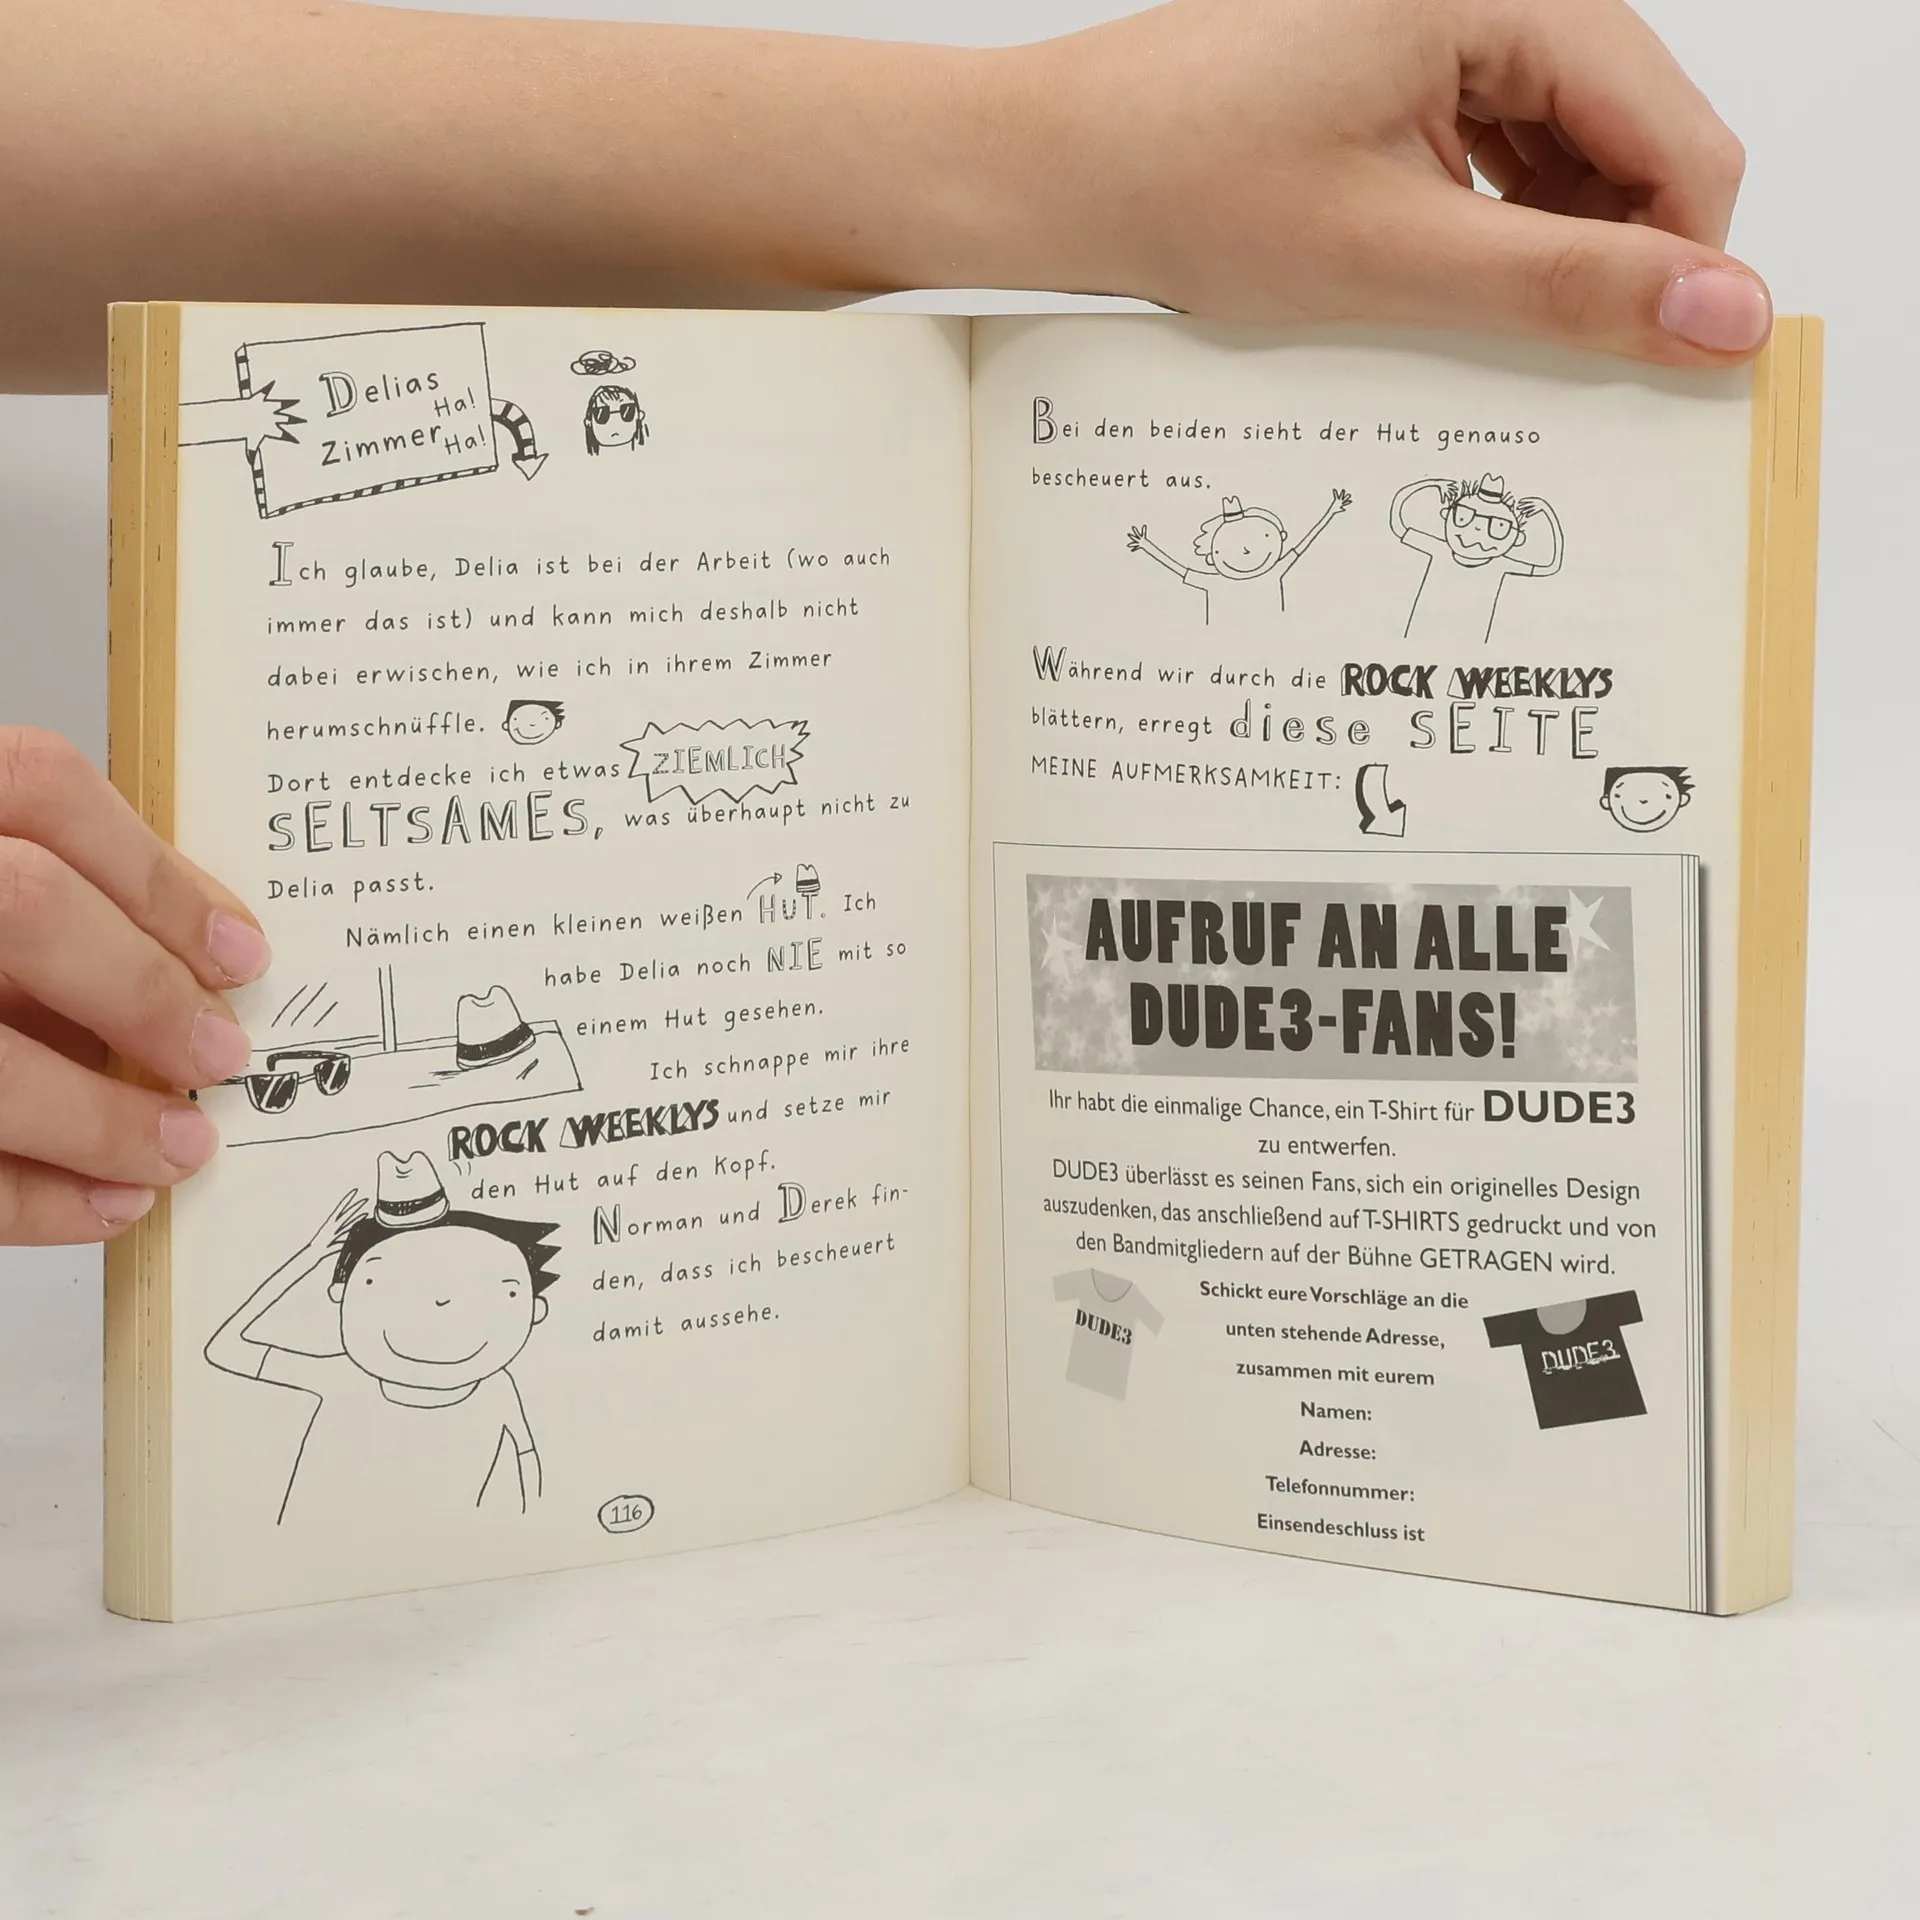 Delias
Ha!
Zimmer
Ha!
Ich glaube, Delia ist bei der Arbeit (wo auch
immer das ist) und kann mich deshalb nicht
dabei erwischen, wie ich in ihrem Zimmer
herumschnüffle.
Dort entdecke ich etwas ZIEMLICH
SELTSAMES, was überhaupt nicht zu
Delia passt.
Nämlich einen kleinen weißen HUT. Ich
habe Delia noch NIE mit so
einem Hut gesehen.
Ich schnappe mir ihre
ROCK WEEKLYS und setze mir
den Hut auf den Kopf.
Norman und Derek fin-
den, dass ich bescheuert
damit aussehe.
116
Bei den beiden sieht der Hut genauso
bescheuert aus.
Während wir durch die ROCK WEEKLYS
blättern, erregt diese SEITE
MEINE AUFMERKSAMKEIT:
AUFRUF AN ALLE
DUDE3-FANS!
Ihr habt die einmalige Chance, ein T-Shirt für DUDE3
zu entwerfen.
DUDE3 überlässt es seinen Fans, sich ein originelles Design
auszudenken, das anschließend auf T-SHIRTS gedruckt und von
den Bandmitgliedern auf der Bühne GETRAGEN wird.
Schickt eure Vorschläge an die
unten stehende Adresse,
zusammen mit eurem
Namen:
Adresse:
Telefonnummer:
Einsendeschluss ist
DUDE3
DUDE3